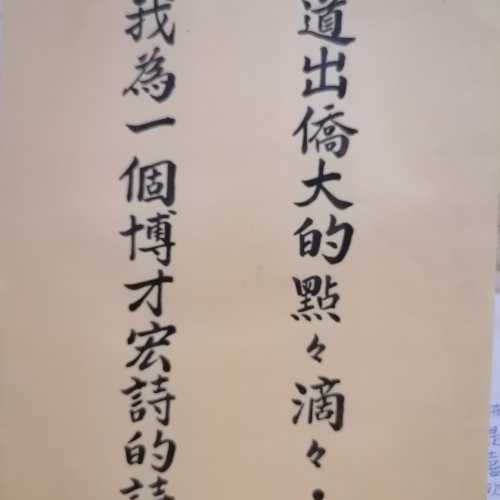 道出僑大的點々滴々．
我為一個博才宏詩的詩